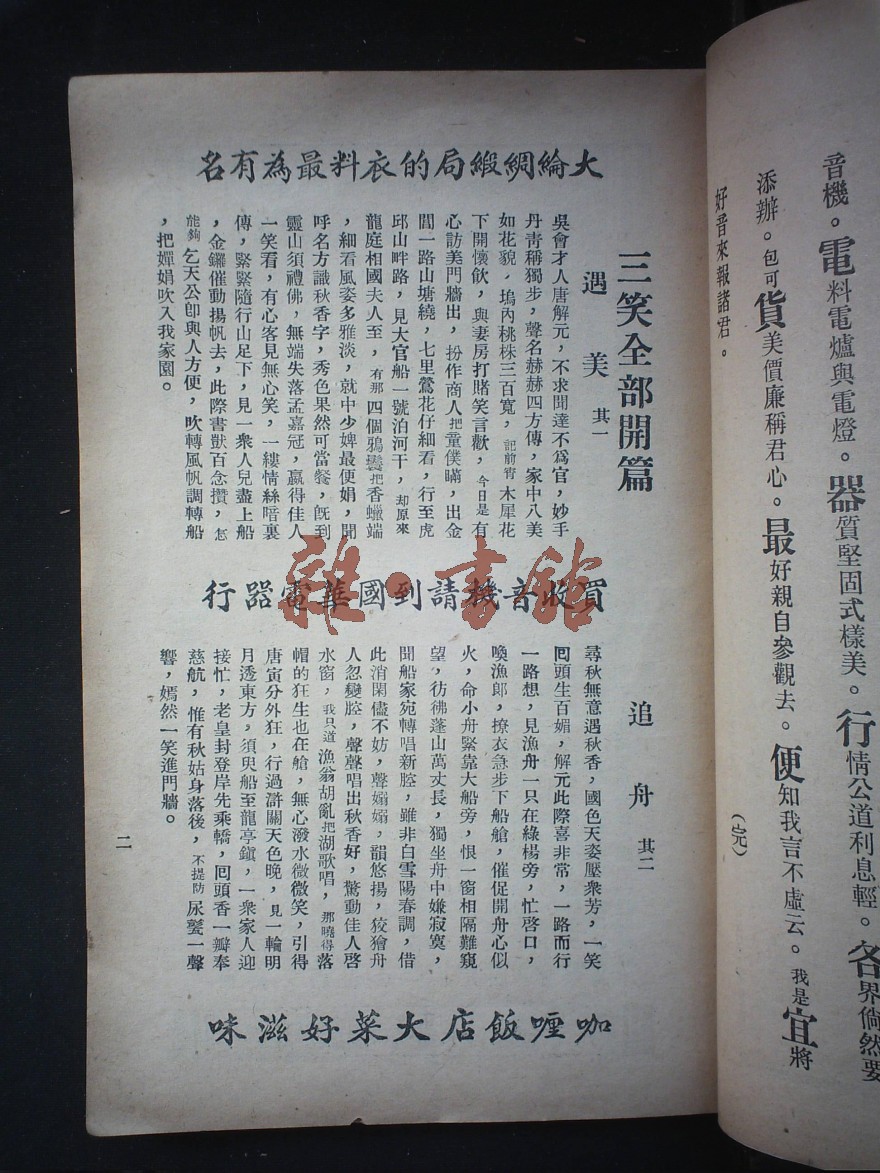 音機。電料電爐與電燈。器質堅固式樣美。行情公道利息輕。各界倘然要
添辦。包可貨美價廉稱君心。最好親自參觀去。便知我言不虛云。我是宜將
好音來報諸君。
（完）
大綸綢緞局的衣料最為有名
三笑全部開篇
遇美 其一
吳會才人唐解元，不求聞達不為官，妙手
丹青稱獨步，聲名赫赫四方傳，家中八美
如花貌，塢內桃株三百寬，記前宵木犀花
下開懷飲，與妻房打賭笑言歡，今日是有
心訪美門牆出，扮作商人把童僕瞞，出金
閶一路山塘繞，七里鶯花仔細看，行至虎
邱山畔路，見大官船一號泊河干，却原來
龍庭相國夫人至，有那四個鴉鬟把香蠟端
，細看風姿多雅淡，就中少婢最便娟，聞
呼名方識秋香字，秀色果然可當餐，旣到
靈山須禮佛，無端失落孟嘉冠，贏得佳人
一笑看，有心客見無心笑，一縷情絲暗裏
傳，緊緊隨行山足下，見一衆人兒盡上船
，金鑼催動揚帆去，此際書獃百念攢，怎
能夠乞天公卽與人方便，吹轉風帆調轉船
，把嬋娟吹入我家園。
買收音機請到國華電器行
追舟 其二
尋秋無意遇秋香，國色天姿壓衆芳，一笑
囘頭生百媚，解元此際喜非常，一路而行
一路想，見漁舟一只在綠楊旁，忙啓口，
喚漁郎，撩衣急步下船艙，催促開舟心似
火，命小舟緊靠大船旁，恨一窗相隔難窺
望，彷彿蓬山萬丈長，獨坐舟中嫌寂寞，
聞船家宛轉唱新腔，雖非白雪陽春調，借
此消閑儘不妨，聲嫋嫋，韻悠揚，狡獪舟
人忽變腔，聲聲唱出秋香好，驚動佳人啓
水窗，我只道漁翁胡亂把湖歌唱，那曉得落
帽的狂生也在艙，無心潑水微微笑，引得
唐寅分外狂，行過滸關天色晚，見一輪明
月透東方，須臾船至龍亭鎭，一衆家人迎
接忙，老皇封登岸先乘轎，囘頭香一瓣奉
慈航，惟有秋姑身落後，不提防尿甏一聲
響，嫣然一笑進門牆。
咖喱飯店大菜好滋味
二
雜·書館